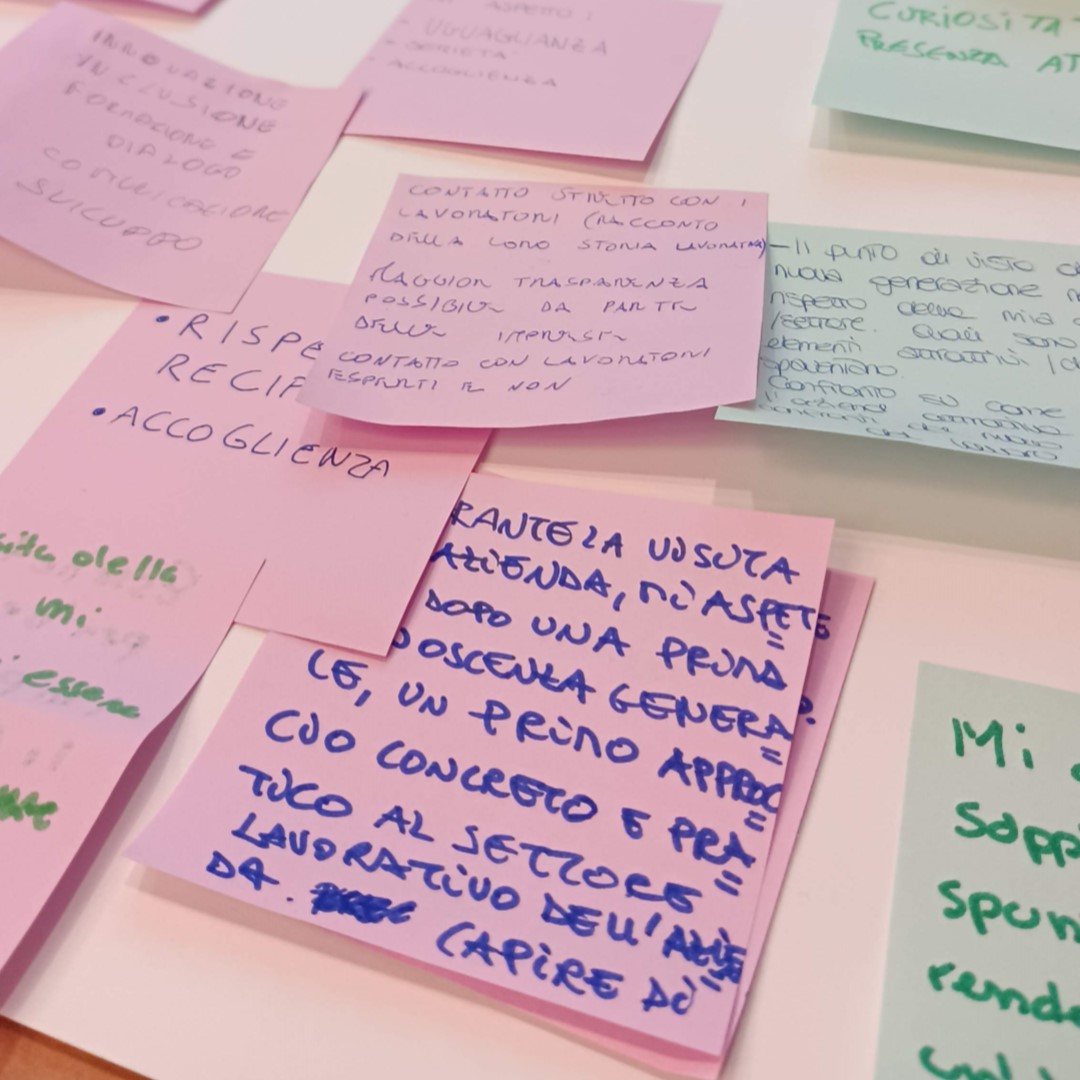 INNOVAZIONE
INCLUSIONE
FORMAZIONE E
DIALOGO
COMUNICAZIONE
SVILUPPO
ASPETTO:
- UGUAGLIANZA
- SOCIETA'
- ACCOGLIENZA
CURIOSITA'
PRESENZA AT
CONTATTO STRETTO CON I
LAVORATORI (RACCONTO
DELLA LORO STORIA LAVORATIVA)
MAGGIOR TRASPARENZA
POSSIBILE DA PARTE
DELLE IMPRESE
CONTATTO CON LAVORATORI
ESPERTI E NON
- Il punto di vista
nuova generazione
rispetto della mia
/settore. Quali sono
elementi attrattivi /
spaventano
Confronto su come
• RISPE
RECIP
• ACCOGLIENZA
sita della
mi
essere
RANTE LA VISITA
AZIENDA, MI ASPET=
DOPO UNA PRIMA
NOSCENZA GENERA=
LE, UN PRIMO APPROC=
CIO CONCRETO E PRA=
TICO AL SETTORE
LAVORATIVO DELL'AZIE=
DA. CAPIRE DI
Mi
sapp
spun
rende